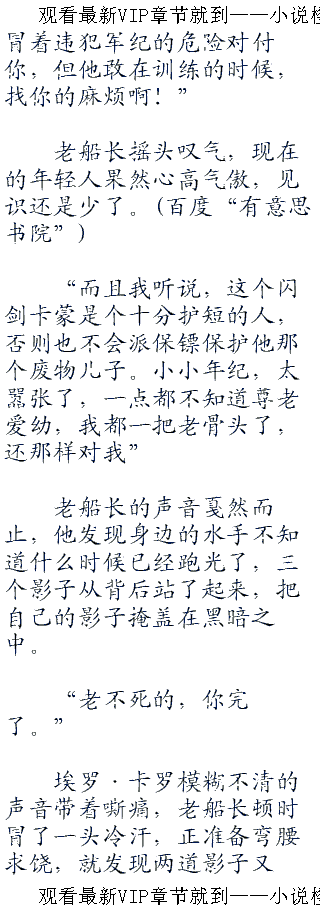 观看最新VIP章节就到——小说检
冒着违犯军纪的危险对付
你，但他敢在训练的时候，
找你的麻烦啊！”
老船长摇头叹气，现在
的年轻人果然心高气傲，见
识还是少了。(百度“有意思
书院”)
“而且我听说，这个闪
剑卡蒙是个十分护短的人，
否则也不会派保镖保护他那
个废物儿子。小小年纪，太
嚣张了，一点都不知道尊老
爱幼，我都一把老骨头了，
还那样对我”
老船长的声音戛然而
止，他发现身边的水手不知
道什么时候已经跑光了，三
个影子从背后站了起来，把
自己的影子掩盖在黑暗之
中。
“老不死的，你完
了。”
埃罗·卡罗模糊不清的
声音带着嘶痛，老船长顿时
冒了一头冷汗，正准备弯腰
求饶，就发现两道影子又
观看最新VIP章节就到——小说检